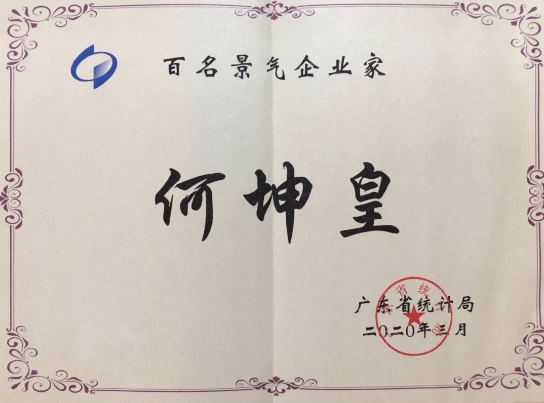 百名景气企业家
何坤皇
广东省统计局
二〇二〇年三月